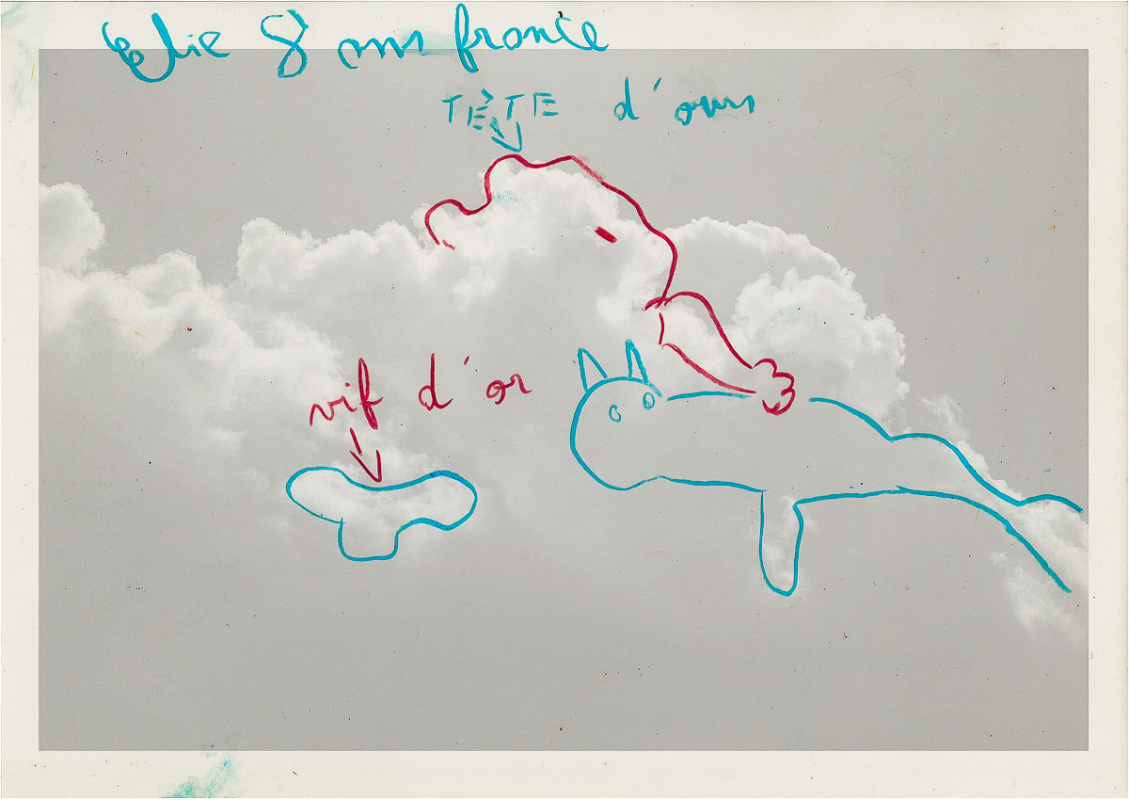 Elie 8 ans france
TÈTE d'ours
vif d'or